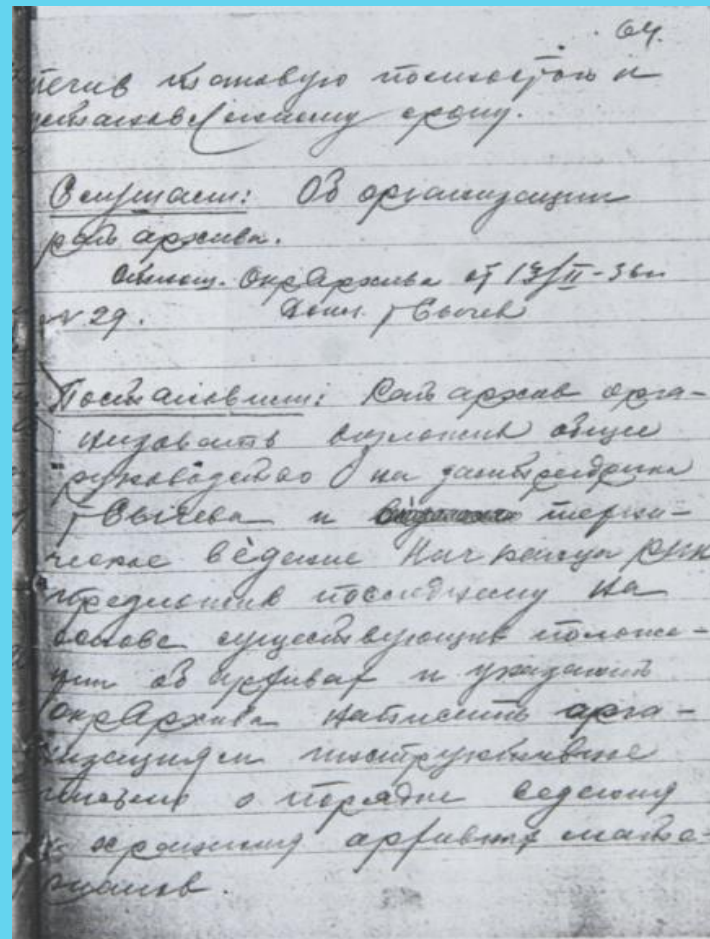 64.
печив таковую полностью к
установленному сроку.
Слушали: Об организации
рай архива.
Отнош. ОкрАрхива от 13/II-36г
№ 29. Докл. т Сычев
Постановили: Рай архив орга-
низовать возложив общее
руководство на зампредрика
т Сычева и техни-
ческое ведение Нач канцел РИК
предложив последнему на
основе существующих положе-
ний об архивах и указаний
ОкрАрхива написать орга-
низациям инструктивное
письмо о порядке ведения
и хранения архивных мате-
риалов.